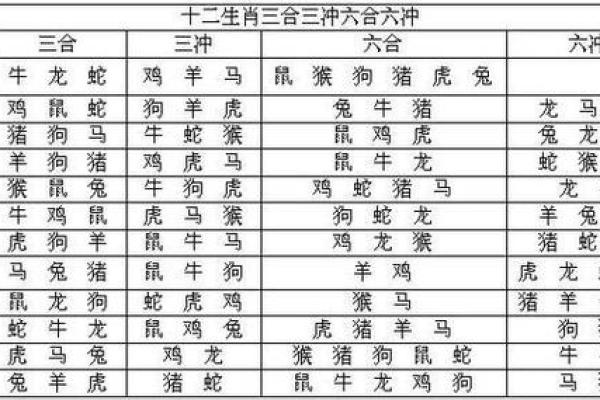 十二生肖三合三冲六合六冲
三合 三冲 六合 六冲
牛 龙 蛇 鸡 羊 马 鼠 猴 狗 猪 虎 兔
鸡 鼠 蛇 狗 羊 虎 兔 牛 猪 龙 马
猪 狗 马 牛 蛇 猴 鼠 鸡 虎 兔 龙
羊 狗 猪 鸡 虎 马 鼠 牛 龙 蛇 猴
猴 鼠 兔 牛 狗 虎 鸡 蛇 猪 马 龙
牛 鸡 鼠 虎 马 猴 狗 蛇 龙 羊 兔
虎 狗 羊 鼠 牛 马 鸡 龙 猴 猪 蛇
马 兔 猪 鼠 牛 狗 羊 鸡 虎 龙
鼠 龙 狗 蛇 虎 鸡 猴 马 猪 羊
蛇 牛 龙 鼠 鸡 兔 虎 猪 羊 马 狗
虎 马 兔 鸡 龙 猴 猪 狗 鼠 蛇 牛
兔 羊 虎 猪 蛇 鼠 牛 龙 鸡 狗 马